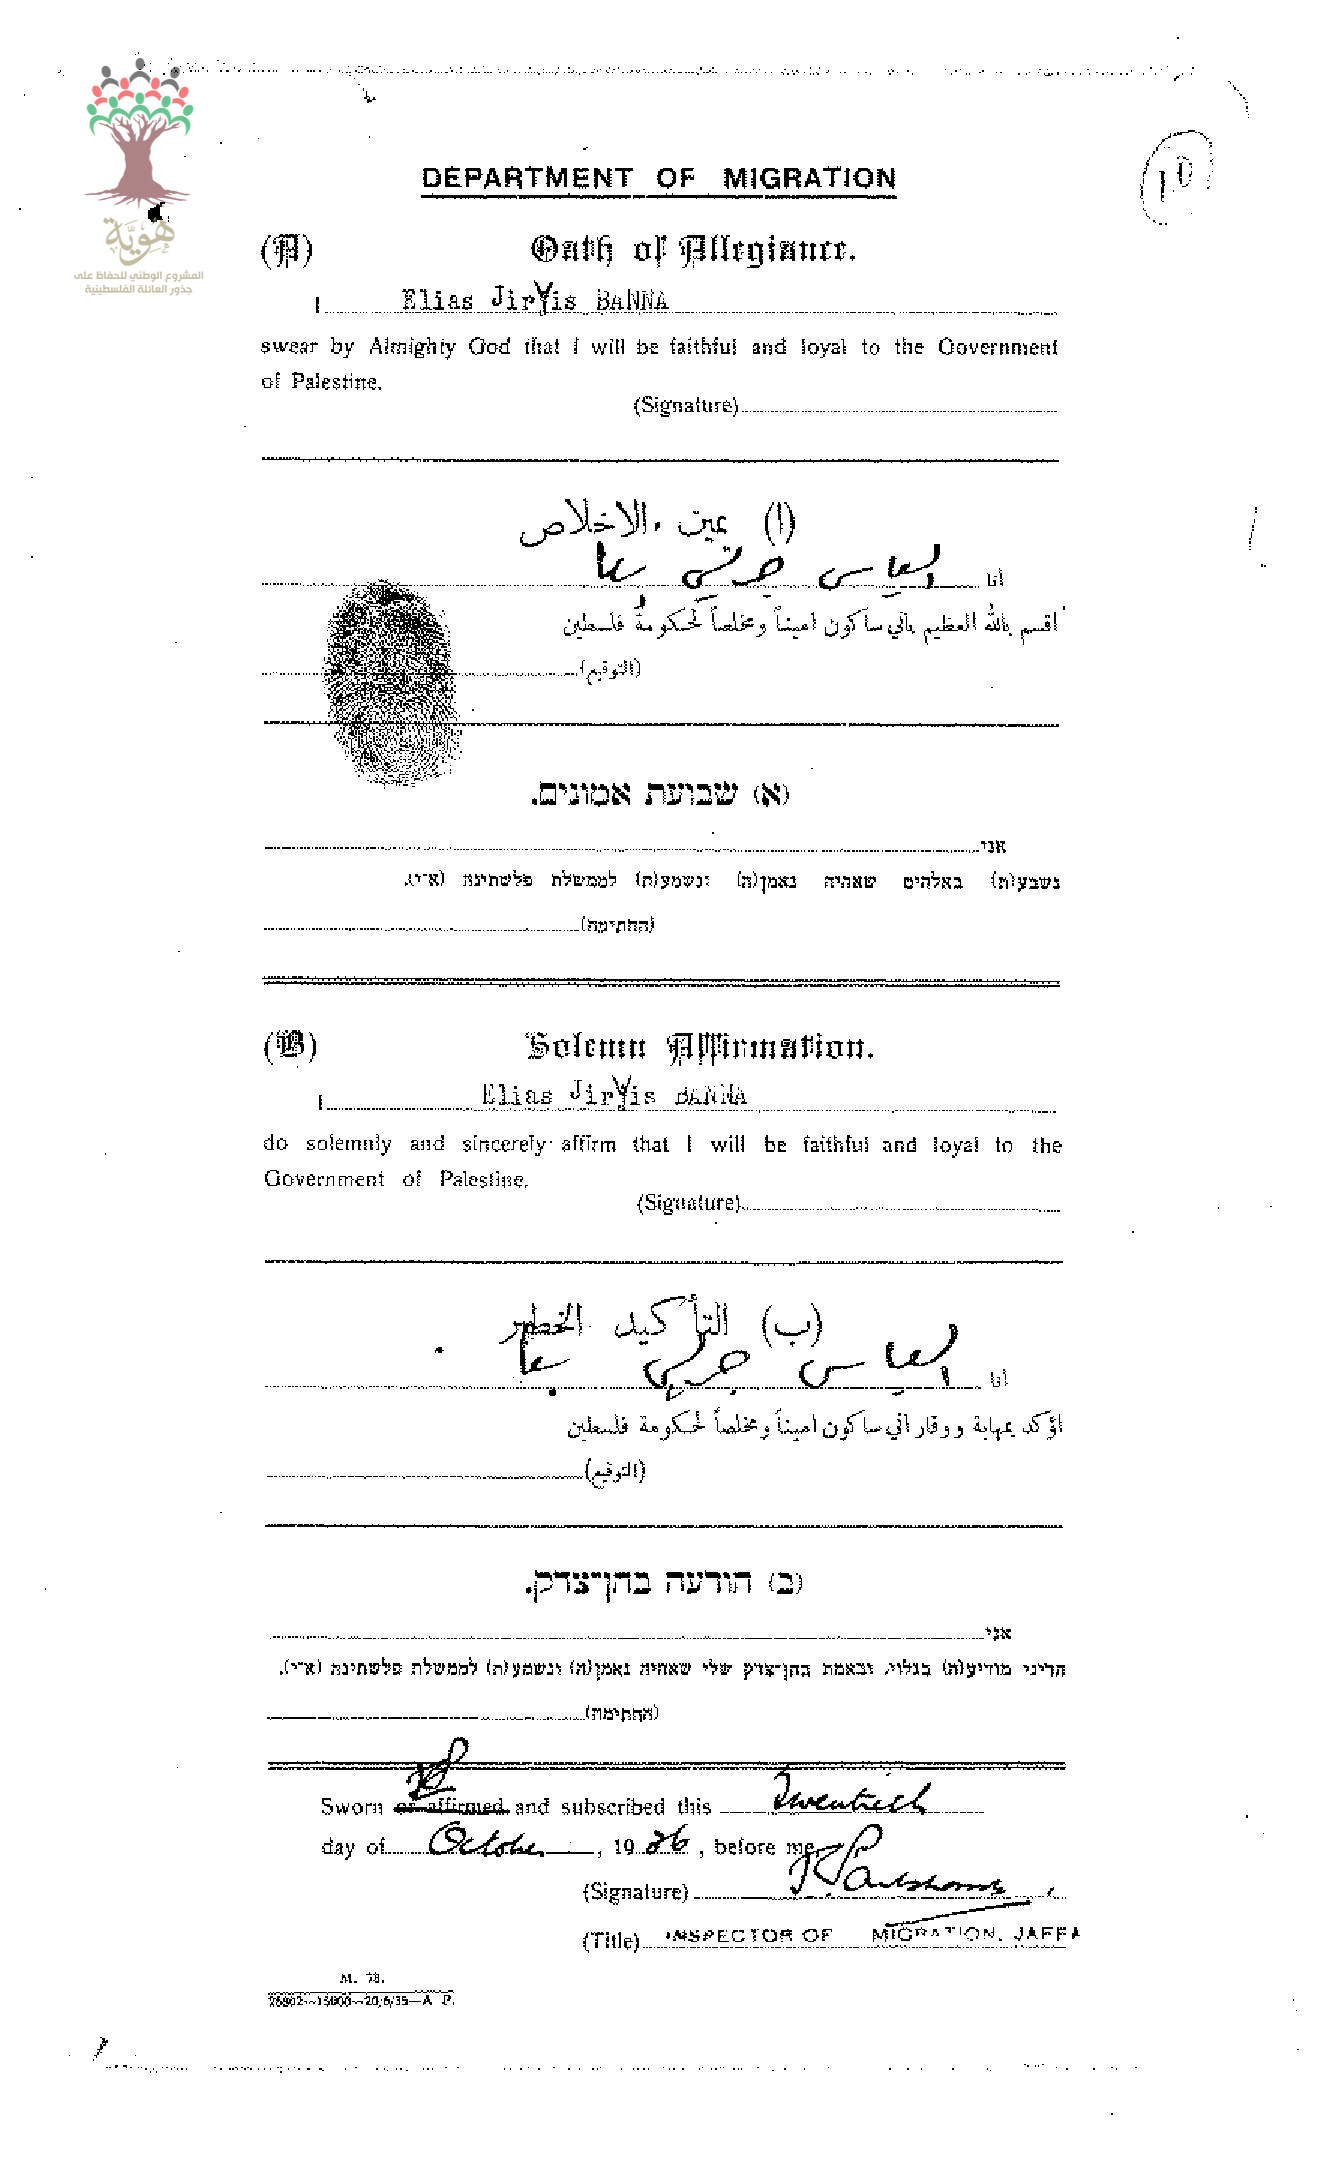 هوية
المشروع الوطني للحفاظ على
جذور العائلة الفلسطينية
10
DEPARTMENT OF MIGRATION
(A) Oath of Allegiance.
I Elias Jiryis BANNA
swear by Almighty God that I will be faithful and loyal to the Government
of Palestine.
(Signature)
(ا) يمين الاخلاص
انا الياس جريس بنا
اقسم بالله العظيم باني ساكون اميناً ومخلصاً لحكومة فلسطين
(التوقيع)
(א) שבועת אמונים.
אני
נשבע(ת) באלהים שאהיה נאמן(ה) ונשמע(ת) לממשלת פלשתינה (א״י).
(החתימה)
(B) Solemn Affirmation.
I Elias Jiryis BANNA
do solemnly and sincerely affirm that I will be faithful and loyal to the
Government of Palestine.
(Signature)
(ب) التأكيد الخطير
انا الياس جريس بنا
اؤكد بمهابة ووقار اني ساكون اميناً ومخلصاً لحكومة فلسطين
(التوقيع)
(ב) הודעה בהן־צדק.
אני
הריני מודיע(ה) בגלוי, ובאמת בהן־צדק שלי שאהיה נאמן(ה) ונשמע(ת) לממשלת פלשתינה (א״י).
(החתימה)
Sworn or affirmed and subscribed this Twentieth
day of October, 1936, before me,
(Signature)
(Title) INSPECTOR OF MIGRATION, JAFFA
M. 78.
26902—15000—20/6/35—A. P.